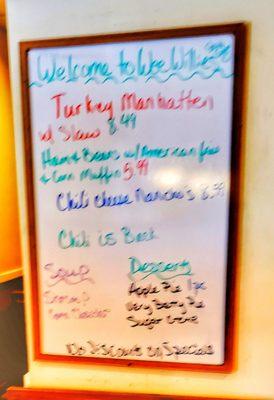 Welcome to Luke Willie's
Turkey Manhatten
w/ Slaw 8.49
Ham & Beans w/ American fries
& Corn Muffin 5.99
Chili cheese Nancho's 8.99
Chili is Back
Soup Desserts
Apple Pie 1pc
Very Berry Pie
Sugar Creme
No Discounts on Specials